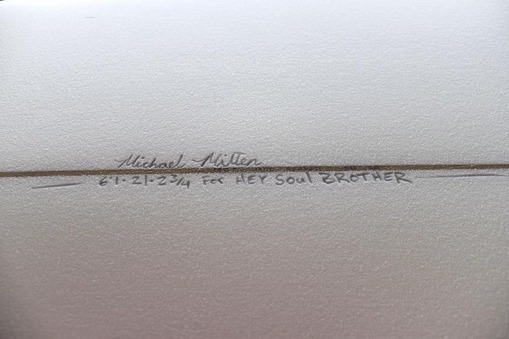 Michael Miller
6'1 · 21 · 2 3/4 For HEY Soul BROTHER